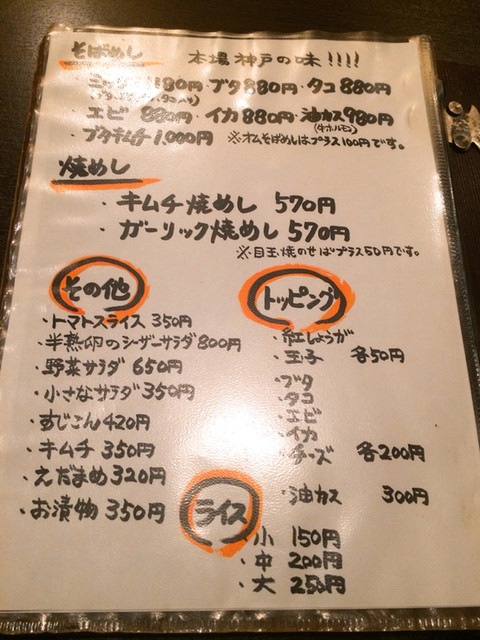 そばめし 本場神戸の味!!!!
ミックス1,180円・ブタ880円・タコ880円
・エビ 880円・イカ880円・油カス980円
(牛ホルモン)
・ブタキムチ1,000円 ※オムそばめしはプラス100円です。
焼めし
・キムチ焼めし 570円
・ガーリック焼めし 570円
※目玉焼のせはプラス50円です。
その他
・トマトスライス 350円
・半熟卵のシーザーサラダ800円
・野菜サラダ 650円
・小さなサラダ 350円
・すじこん420円
・キムチ 350円
・えだまめ 320円
・お漬物 350円
トッピング
・紅しょうが
・玉子 各50円
・ブタ
・タコ
・エビ
・イカ
・チーズ 各200円
・油カス 300円
ライス
・小 150円
・中 200円
・大 250円